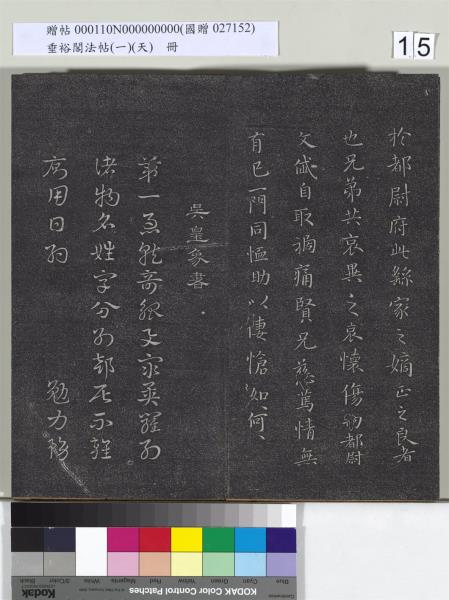 贈帖 000110N000000000(國贈 027152)
垂裕閣法帖(一)(天) 冊
15
於都尉府此繇家之嫡正之良者
也兄弟共哀異之哀懷傷切都尉
文岱自取禍痛賢兄慈篤情無
有已一門同恤助以悽愴如何
吳皇象書
第一急就奇觚與眾異羅列
諸物名姓字分別部居不雜
廁用日約 勉力務
Kodak Color Control Patches
Blue Cyan Green Yellow Red Magenta White 3/Color Black